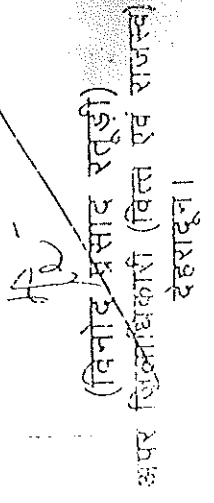 (विनोद प्रसाद रतूड़ी)
अपर जिलाधिकारी (वित्त एवं राजस्व)
देहरादून।